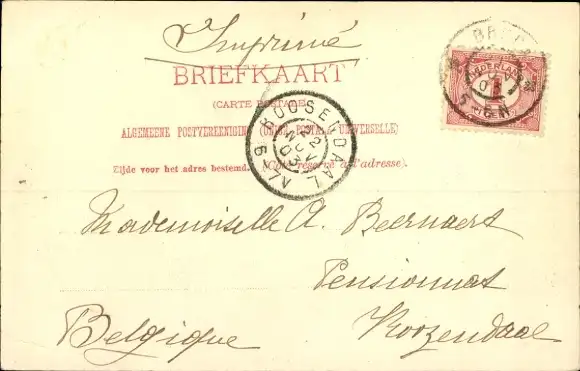 Imprimé
BRIEFKAART
(CARTE POSTALE)
ALGEMEENE POSTVEREENIGING (UNION POSTALE UNIVERSELLE)
Zijde voor het adres bestemd. (Côté réservé à l'adresse.)
ROOSENDAAL
NEDERLAND
1
Mademoiselle A. Beernaert
Pensionnat
Belgique Roozendaal